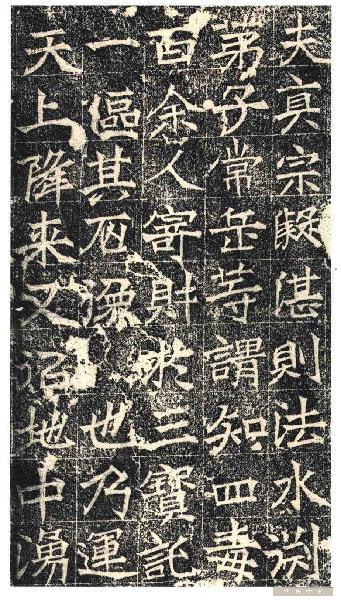 夫真宗凝湛則法水渕
弟子常岳等謂知四毒
百余人寄財於三寶託
一區其石也乃運
天上降来又地中湧